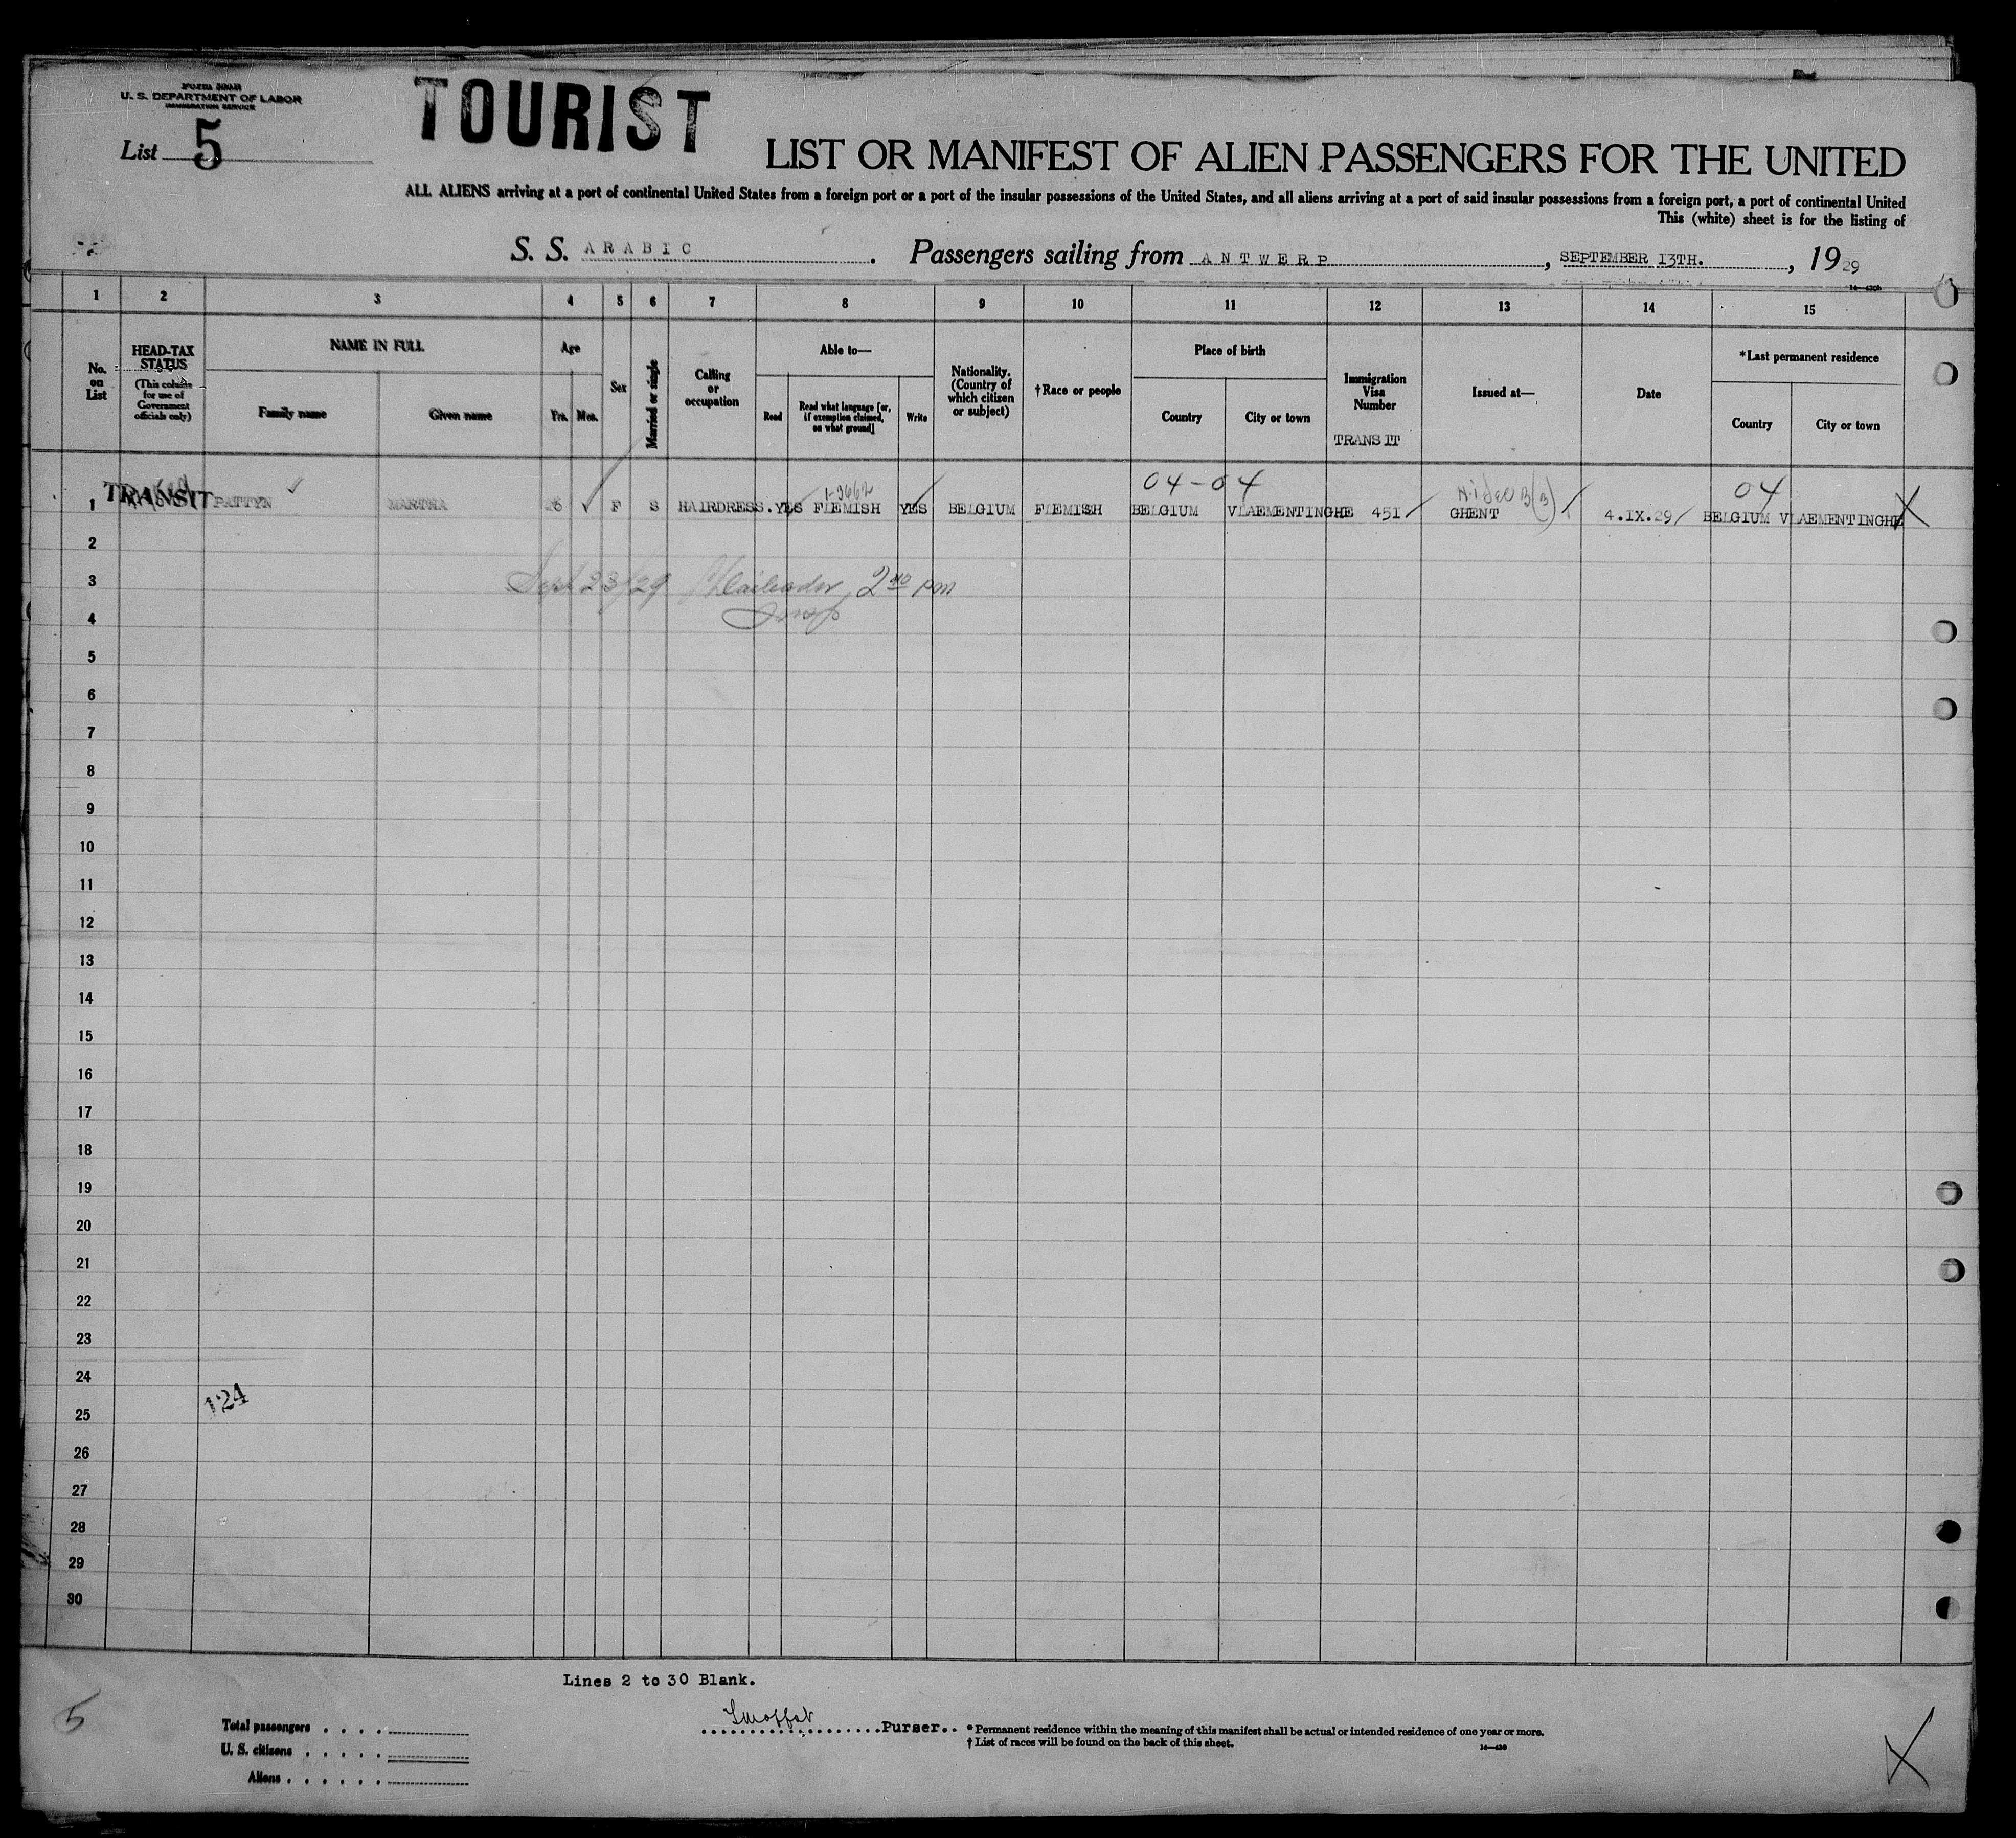 Form 500B
U. S. DEPARTMENT OF LABOR
IMMIGRATION SERVICE
TOURIST
List 5
LIST OR MANIFEST OF ALIEN PASSENGERS FOR THE UNITED
ALL ALIENS arriving at a port of continental United States from a foreign port or a port of the insular possessions of the United States, and all aliens arriving at a port of said insular possessions from a foreign port, a port of continental United
This (white) sheet is for the listing of
S. S. ARABIC . Passengers sailing from ANTWERP , SEPTEMBER 13TH. , 1929
1 2 3 4 5 6 7 8 9 10 11 12 13 14 15
No. on List
HEAD-TAX STATUS
(This column for use of Government officials only)
NAME IN FULL
Family name Given name
Age
Yrs. Mos.
Sex
Married or single
Calling or occupation
Able to—
Read
Read what language [or, if exemption claimed, on what ground]
Write
Nationality. (Country of which citizen or subject)
†Race or people
Place of birth
Country City or town
Immigration Visa Number
TRANSIT
Issued at—
Date
*Last permanent residence
Country City or town
04-04 04
1 TRANSIT PATTYN MARTHA 26 F S HAIRDRESS. YES FLEMISH YES BELGIUM FLEMISH BELGIUM VLAEMENTINGHE 451 GHENT 4.IX.29 BELGIUM VLAEMENTINGHE X
2
3 Sept 23/29 2 no pm
4
5
6
7
8
9
10
11
12
13
14
15
16
17
18
19
20
21
22
23
24
124
25
26
27
28
29
30
Lines 2 to 30 Blank.
5
Total passengers . . . .
U. S. citizens . . . . .
Aliens . . . . . .
Smoffat Purser..
* Permanent residence within the meaning of this manifest shall be actual or intended residence of one year or more.
† List of races will be found on the back of this sheet.
X